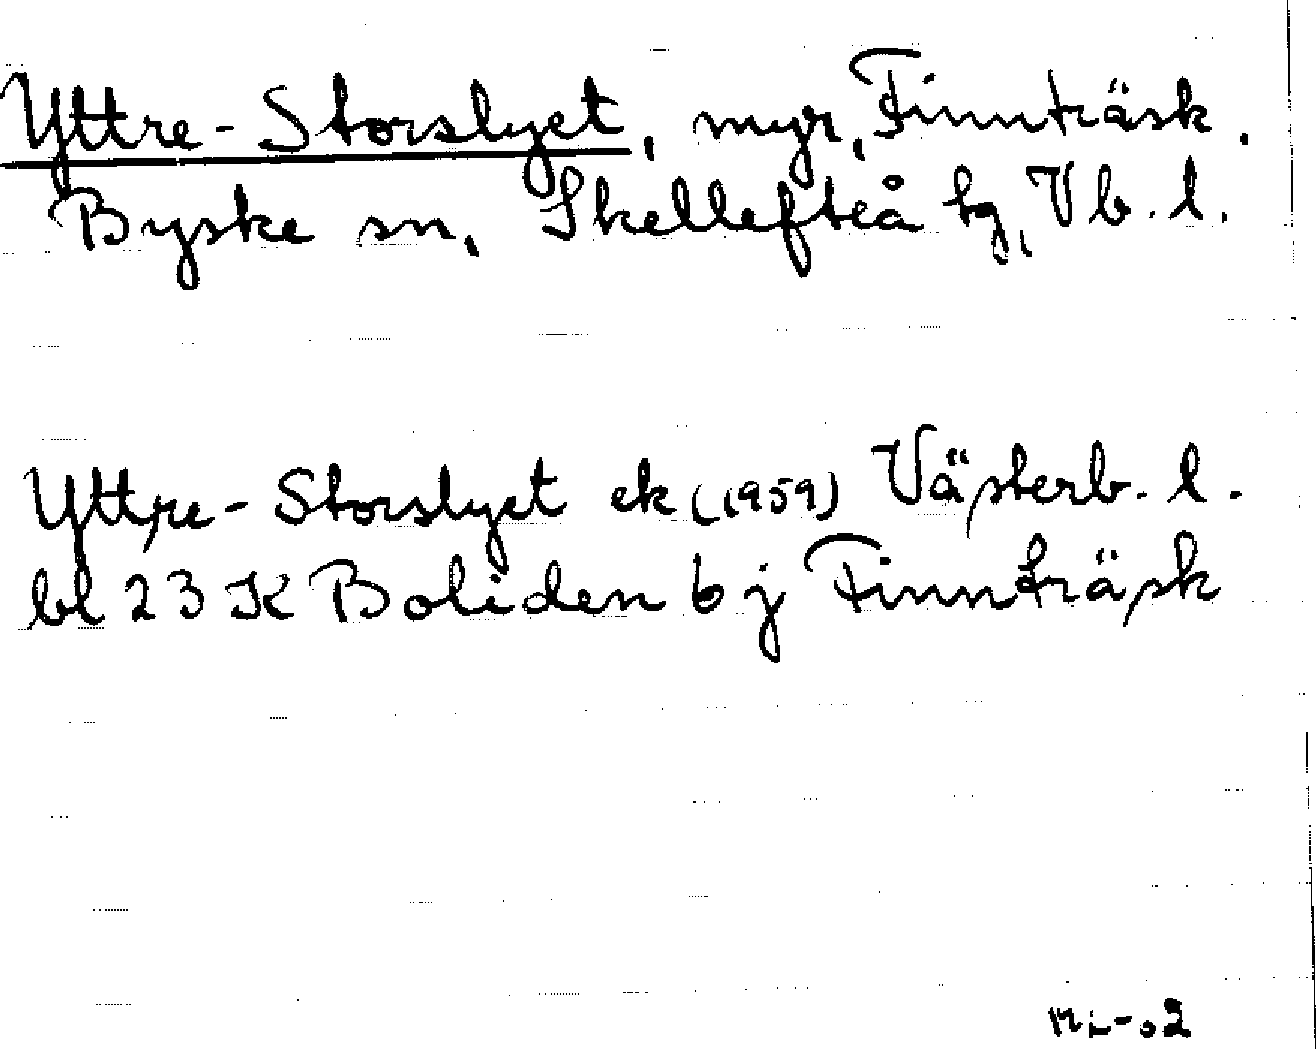 Yttre-Storslyet, myr, Finnträsk.
Byske sn, Skellefteå tg, Vb. l.
Yttre-Storslyet ek (1959) Västerb. l.
bl 23 K Boliden 6 j Finnträsk